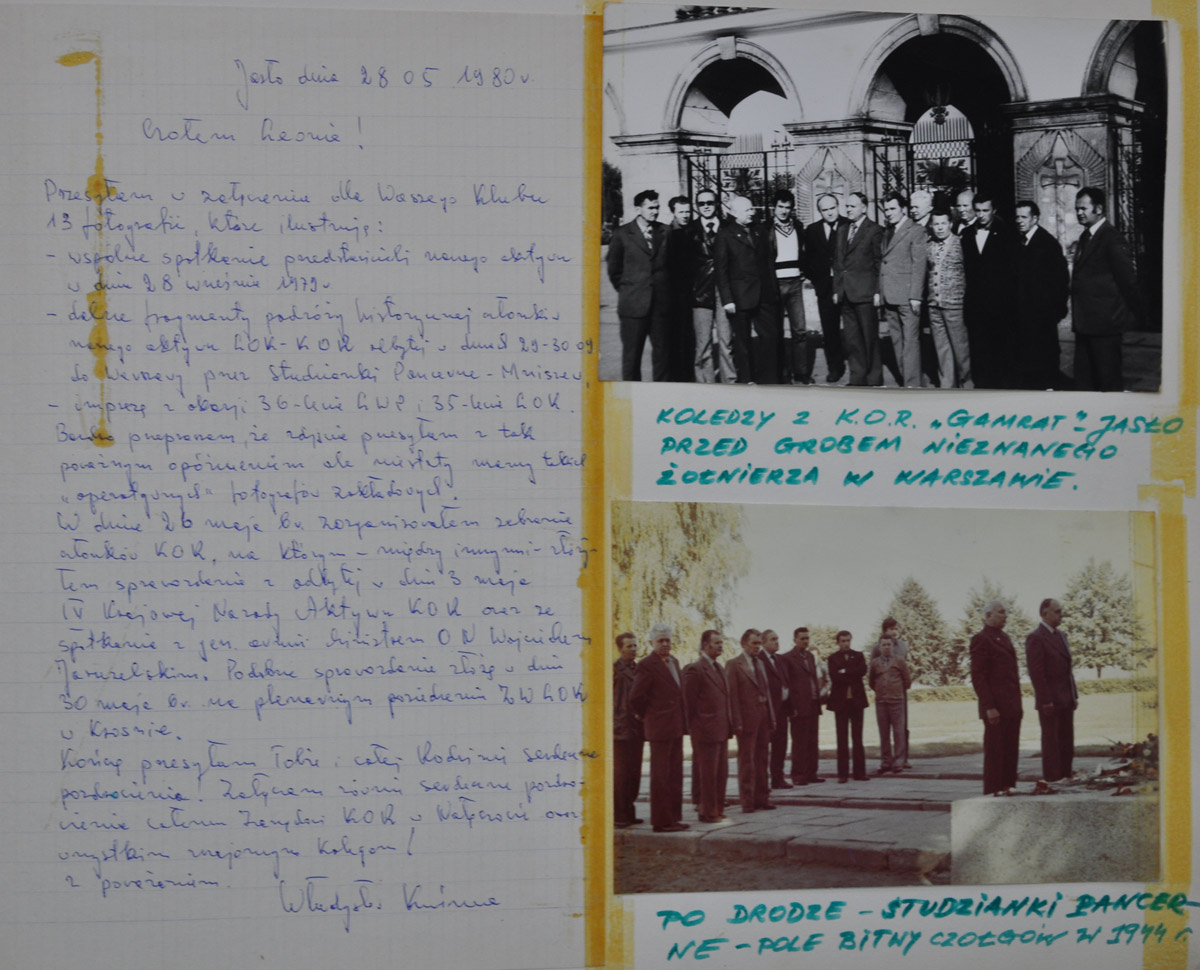 Jasło dnia 28 05 1980 r.
Czołem Leonie!
Przesyłam w załączeniu dla Waszego Klubu
13 fotografii, które ilustrują:
- wspólne spotkanie przedstawicieli naszego aktywu
w dniu 28 września 1979 r
- dalsze fragmenty podróży historycznej członków
naszego aktywu LOK-KOR odbytej w dniach 29-30 09
do Warszawy przez Studzianki Pancerne - Mniszew,
- imprezę z okazji 36-lecia LWP i 35-lecia LOK.
Bardzo przepraszam, że zdjęcia przesyłam z tak
poważnym opóźnieniem ale niestety mamy takich
"operatywnych" fotografów zakładowych.
W dniu 26 maja br. zorganizowałem zebranie
członków KOR, na którym - między innymi - złoży-
łem sprawozdanie z odbytej w dniu 3 maja
IV Krajowej Narady Aktywu KOR oraz ze
spotkania z gen. armii Ministrem ON Wojciechem
Jaruzelskim. Podobne sprawozdanie złożę w dniu
30 maja br. na plenarnym posiedzeniu ZW LOK
w Krośnie.
Kończąc przesyłam Tobie i całej Rodzinie serdeczne
pozdrowienia! Załączam również serdeczne pozdro-
wienia całemu Zarządowi KOR w Wałczu oraz
wszystkim znajomym Kolegom!
z poważaniem.
Władysław
KOLEDZY Z K.O.R. „GAMRAT" - JASŁO
PRZED GROBEM NIEZNANEGO
ŻOŁNIERZA W WARSZAWIE.
PO DRODZE - STUDZIANKI PANCER-
NE - POLE BITWY CZOŁGÓW W 1944 r.